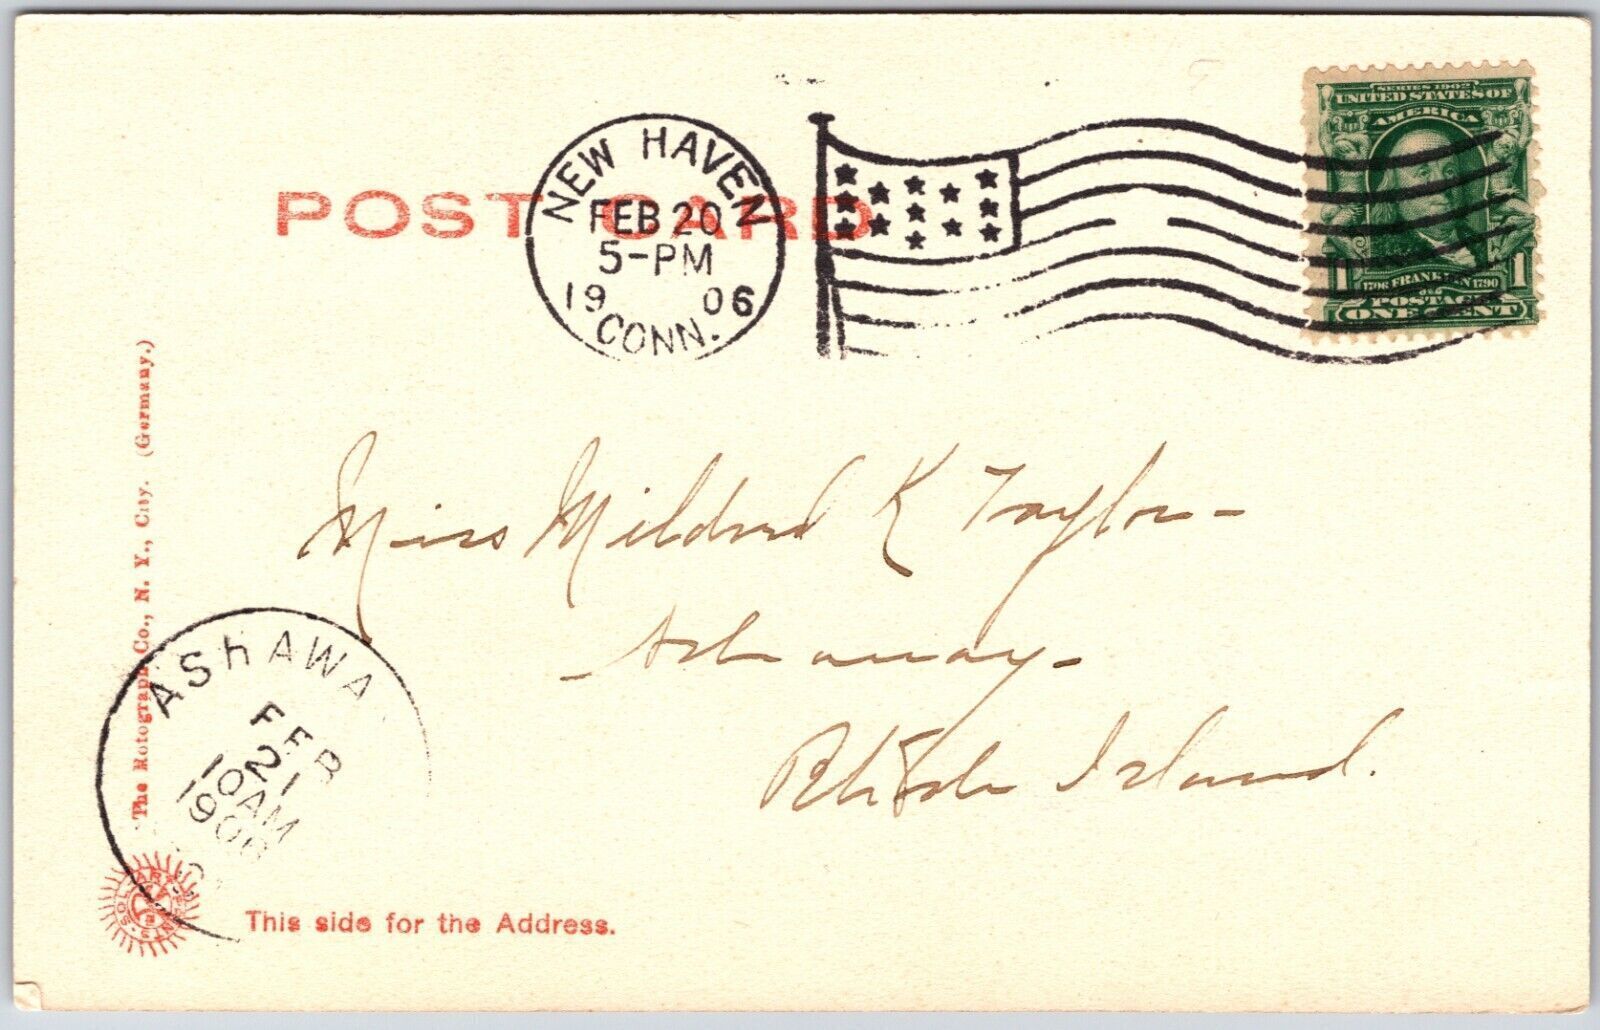 POST CARD
NEW HAVEN
FEB 20
5-PM
1906
CONN.
SERIES 1902
UNITED STATES OF
AMERICA
1 1706 FRANKLIN 1790 1
POSTAGE
ONE CENT
The Rotograph Co., N. Y., City. (Germany.)
Miss Mildred K Taylor-
Ashaway-
Rhode Island.
ASHAWA
FEB
21
10AM
1906
SOL ART PRINTS
This side for the Address.